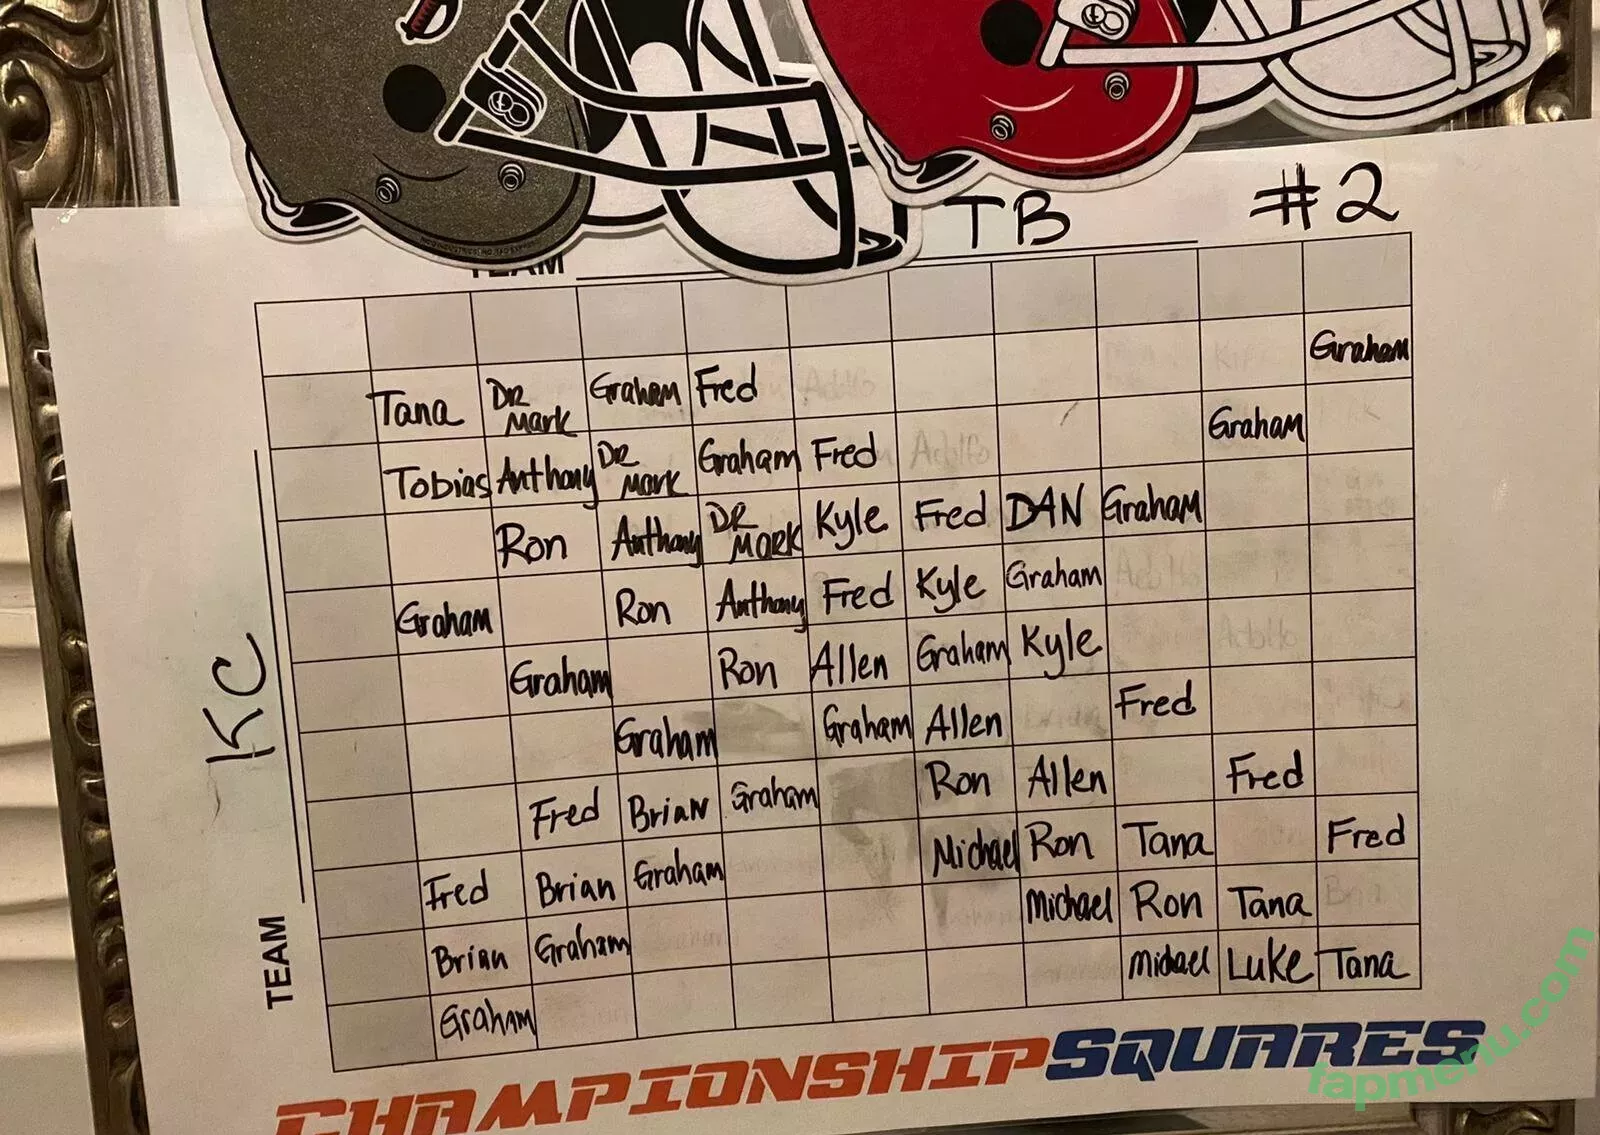 TB #2
TEAM
Graham
Tana DR Mark Graham Fred
Graham
Tobias Anthony DR Mark Graham Fred
Ron Anthony DR MARK Kyle Fred DAN Graham
Graham Ron Anthony Fred Kyle Graham
Graham Ron Allen Graham Kyle
Graham Graham Allen Fred
Fred Brian Graham Ron Allen Fred
Fred Brian Graham Michael Ron Tana Fred
Brian Graham Michael Ron Tana
Graham Michael Luke Tana
KC
TEAM
CHAMPIONSHIP SQUARES
fapmenu.com